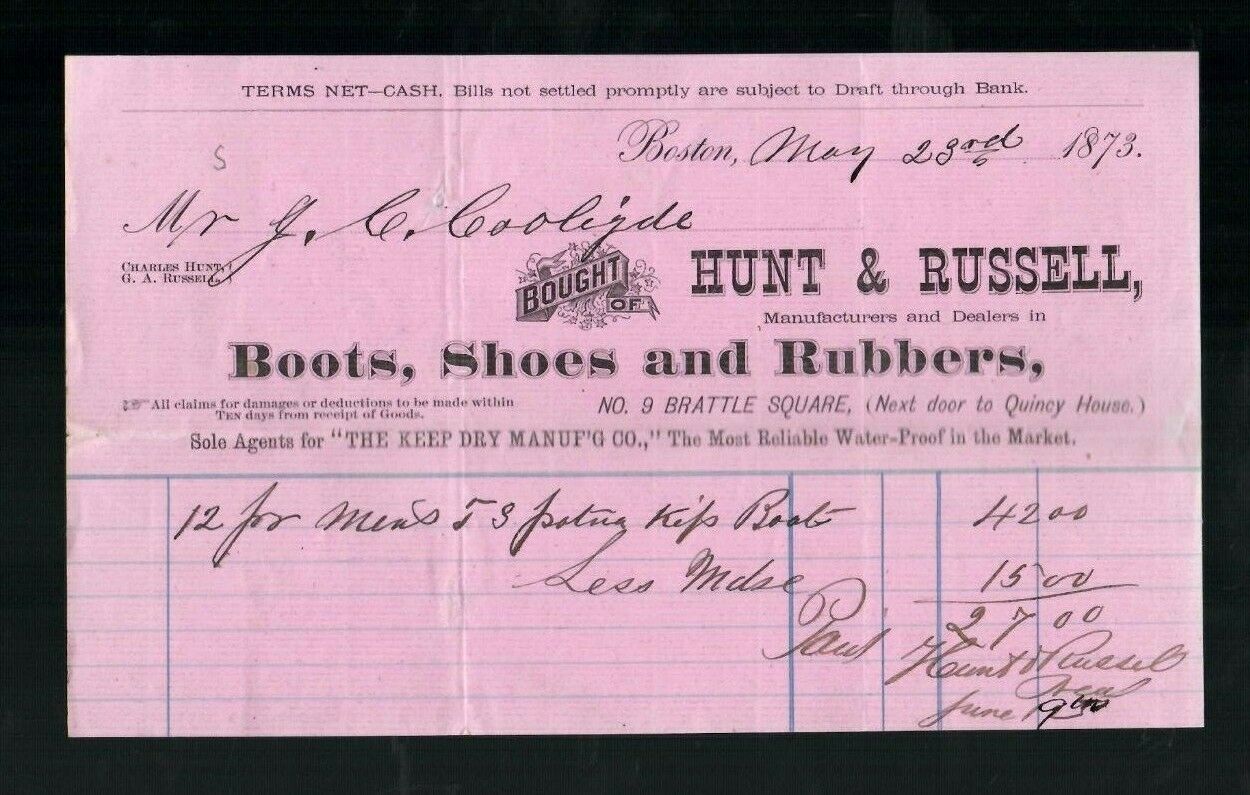 TERMS NET—CASH. Bills not settled promptly are subject to Draft through Bank.
Boston, May 23rd 1873.
S
Mr J. C. Cooligde
CHARLES HUNT,
G. A. RUSSELL.
BOUGHT OF
HUNT & RUSSELL,
Manufacturers and Dealers in
Boots, Shoes and Rubbers,
All claims for damages or deductions to be made within
TEN days from receipt of Goods.
NO. 9 BRATTLE SQUARE, (Next door to Quincy House.)
Sole Agents for "THE KEEP DRY MANUF'G CO.," The Most Reliable Water-Proof in the Market.
12 pr Mens T S patna Kip Boot 42 00
Less Mdse 15 00
27 00
Paid Hunt & Russel
June 9th